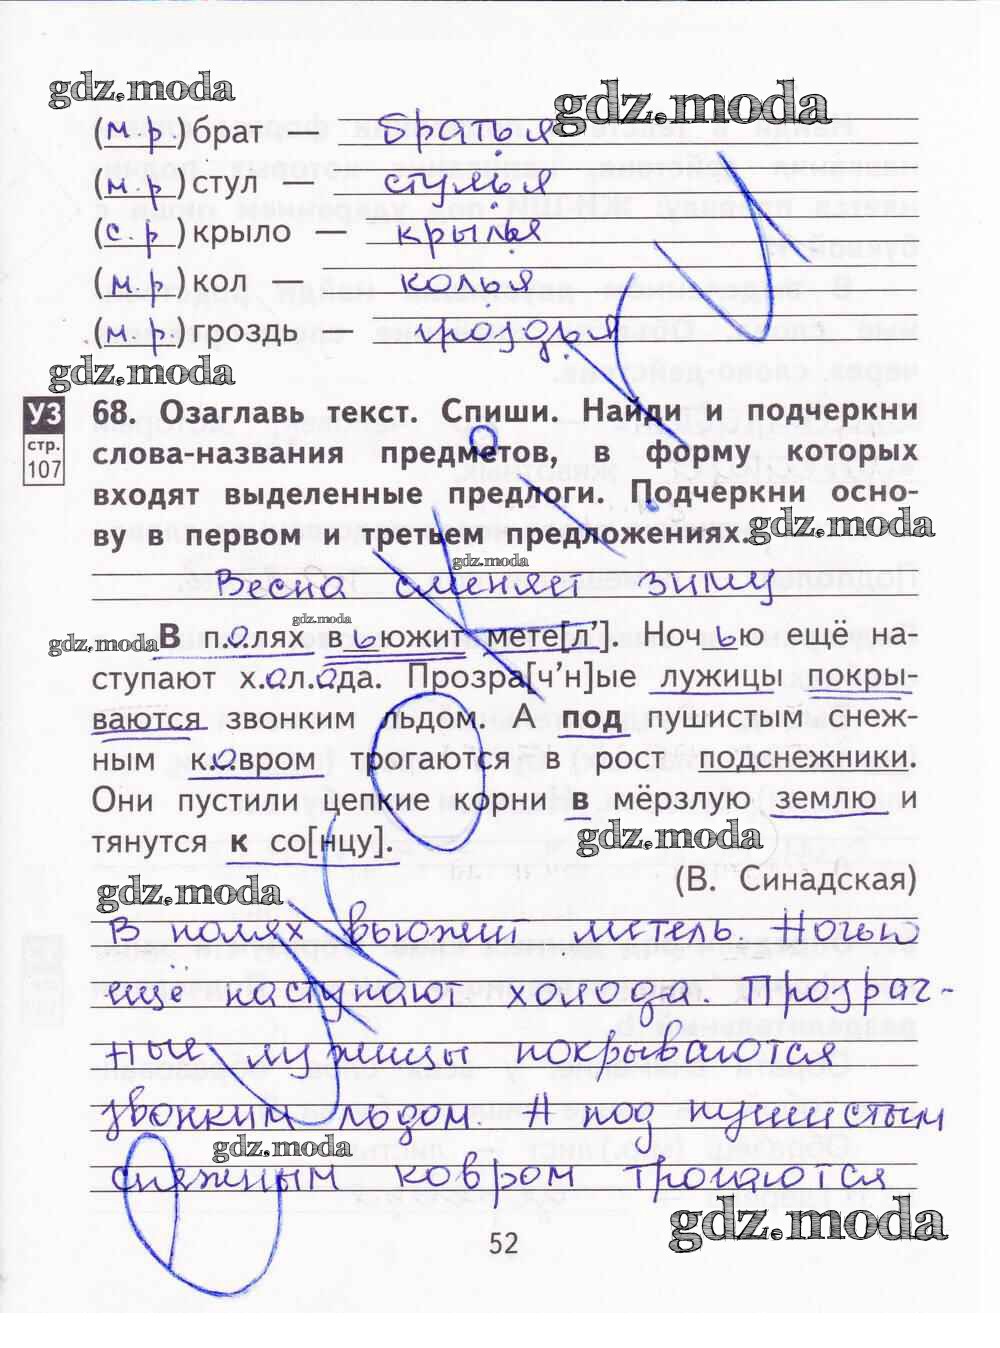 gdz.moda
gdz.moda
(м.р.) брат — братья
(м.р) стул — стулья
(с.р) крыло — крылья
(м.р) кол — колья
(м.р.) гроздь — гроздья
gdz.moda
УЗ
стр.
107
68. Озаглавь текст. Спиши. Найди и подчеркни
слова-названия предметов, в форму которых
входят выделенные предлоги. Подчеркни осно-
ву в первом и третьем предложениях.
gdz.moda
gdz.moda
Весна сменяет зиму
gdz.moda
gdz.moda
В п.о.лях вьюжит мете[л']. Ноч ью ещё на-
ступают х.о.л.о.да. Прозра[ч'н]ые лужицы покры-
ваются звонким льдом. А под пушистым снеж-
ным к.о.вром трогаются в рост подснежники.
Они пустили цепкие корни в мёрзлую землю и
тянутся к со[нцу].
gdz.moda
(В. Синадская)
gdz.moda
В полях вьюжит метель. Ночью
ещё наступают холода. Прозрач-
ные лужицы покрываются
звонким льдом. А под пушистым
gdz.moda
снежным ковром трогаются
gdz.moda
52